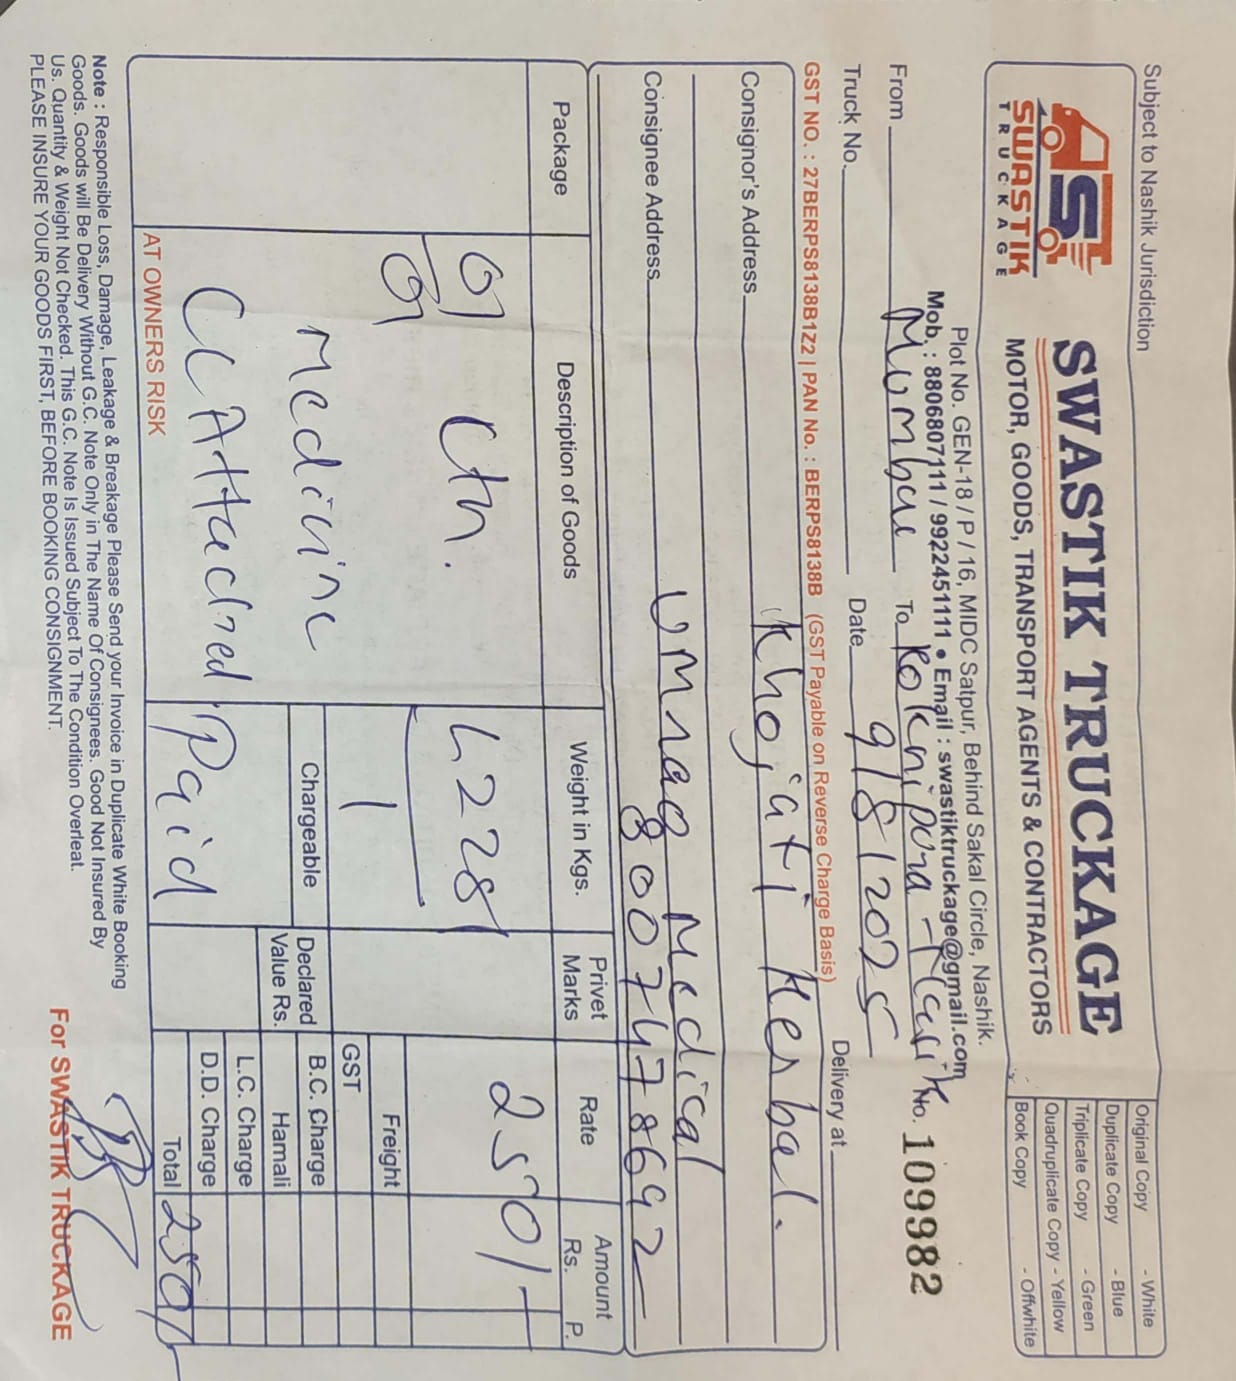 Subject to Nashik Jurisdiction
SWASTIK
TRUCKAGE
SWASTIK TRUCKAGE
MOTOR, GOODS, TRANSPORT AGENTS & CONTRACTORS
Plot No. GEN-18 / P / 16, MIDC Satpur, Behind Sakal Circle, Nashik.
Mob. : 8806807111 / 9922451111 • Email : swastiktruckage@gmail.com
Original Copy - White
Duplicate Copy - Blue
Triplicate Copy - Green
Quadruplicate Copy - Yellow
Book Copy - Offwhite
From Mumbai To Koknipura - Nasik No. 109982
Truck No. Date 9/8/2025 Delivery at
GST NO. : 27BERPS8138B1Z2 | PAN No. : BERPS8138B (GST Payable on Reverse Charge Basis)
Consignor's Address Khojati Herbal.
Umrag Medical
Consignee Address 8007478692
Package Description of Goods Weight in Kgs. Privet Marks Rate Amount Rs. P.
01 Ctn. L228 250/-
01
Medicine 1
CC Attached Paid
Chargeable
Declared Value Rs.
Freight
GST
B.C. Charge
Hamali
L.C. Charge
D.D. Charge
Total 250/-
AT OWNERS RISK
Note : Responsible Loss, Damage, Leakage & Breakage Please Send your Invoice in Duplicate White Booking
Goods. Goods will Be Delivery Without G.C. Note Only in The Name Of Consignees. Good Not Insured By
Us. Quantity & Weight Not Checked. This G.C. Note Is Issued Subject To The Condition Overleat.
PLEASE INSURE YOUR GOODS FIRST, BEFORE BOOKING CONSIGNMENT.
For SWASTIK TRUCKAGE